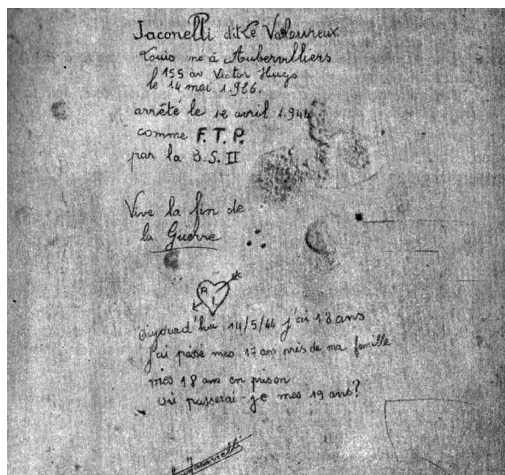 Iaconelli dit Le Valeureux
Louis né à Aubervilliers
le 155 av Victor Hugo
le 14 mai 1.926.
arrêté le 12 avril 1.944
comme F.T.P.
par la B.S. II
Vive la fin de
la Guerre
A
I
aujourd'hui 14/5/44 j'ai 18 ans
j'ai passé mes 17 ans près de ma famille
mes 18 ans en prison
où passerai-je mes 19 ans?